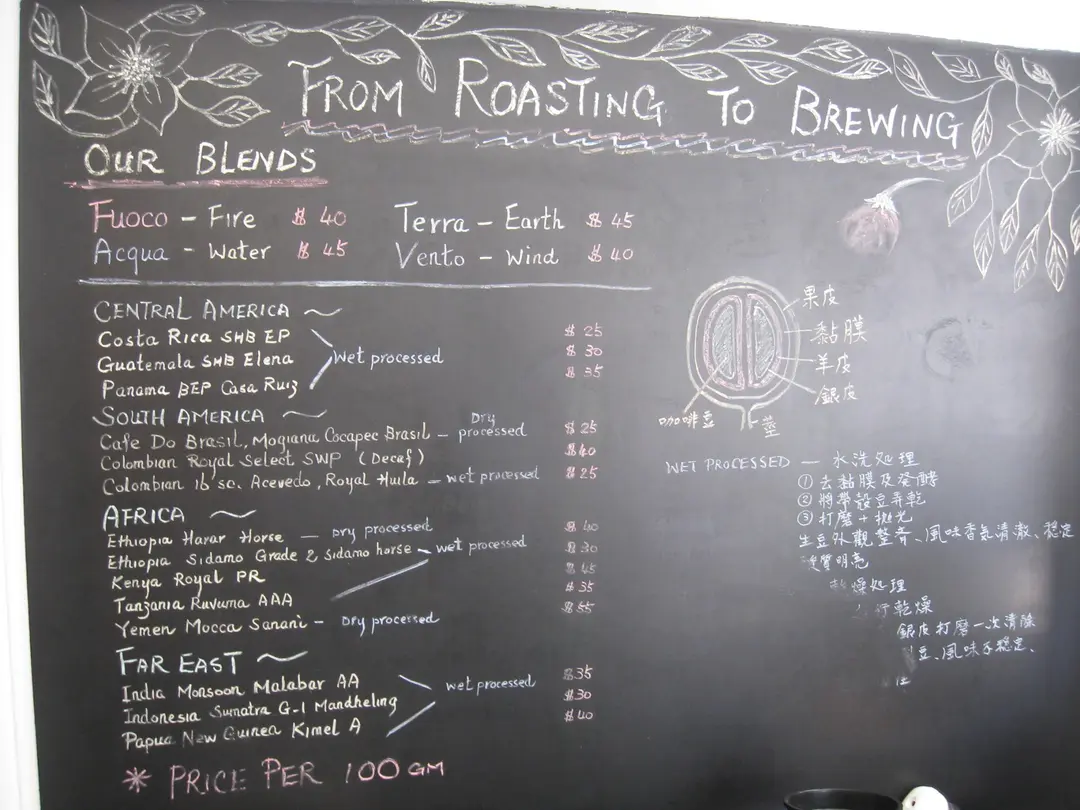 FROM ROASTING TO BREWING
OUR BLENDS
Fuoco - Fire $ 40
Terra - Earth $ 45
Acqua - Water $ 45
Vento - Wind $ 40
CENTRAL AMERICA ~
Costa Rica SHB EP $ 25
Guatemala SHB Elena wet processed $ 30
Panama BEP Casa Ruiz $ 35
SOUTH AMERICA ~
Cafe Do Brasil, Mogiana Cocapec Brasil - Dry processed $ 25
Colombian Royal Select SWP (Decaf) $40
Colombian 16 sc. Acevedo, Royal Huila - wet processed $ 25
AFRICA ~
Ethiopia Harar Horse - Dry processed $ 40
Ethiopia Sidamo Grade 2, Sidamo horse wet processed $ 30
Kenya Royal PR $ 45
Tanzania Ruvuma AAA $ 35
Yemen Mocca Sanani - Dry processed $ 55
FAR EAST ~
India Monsoon Malabar AA $35
Indonesia Sumatra G-1 Mandheling wet processed $30
Papua New Guinea Kimel A $40
* PRICE PER 100 GM
果皮
黏膜
羊皮
銀皮
咖啡豆
莖
WET PROCESSED — 水洗処理
① 去黏膜及發酵
② 將帶殼豆弄乾
③ 打磨 + 拋光
生豆外觀整齊、風味香氣清澈、穩定
質明亮
燥処理
行乾燥
銀皮打磨一次清除
豆、風味不穩定、